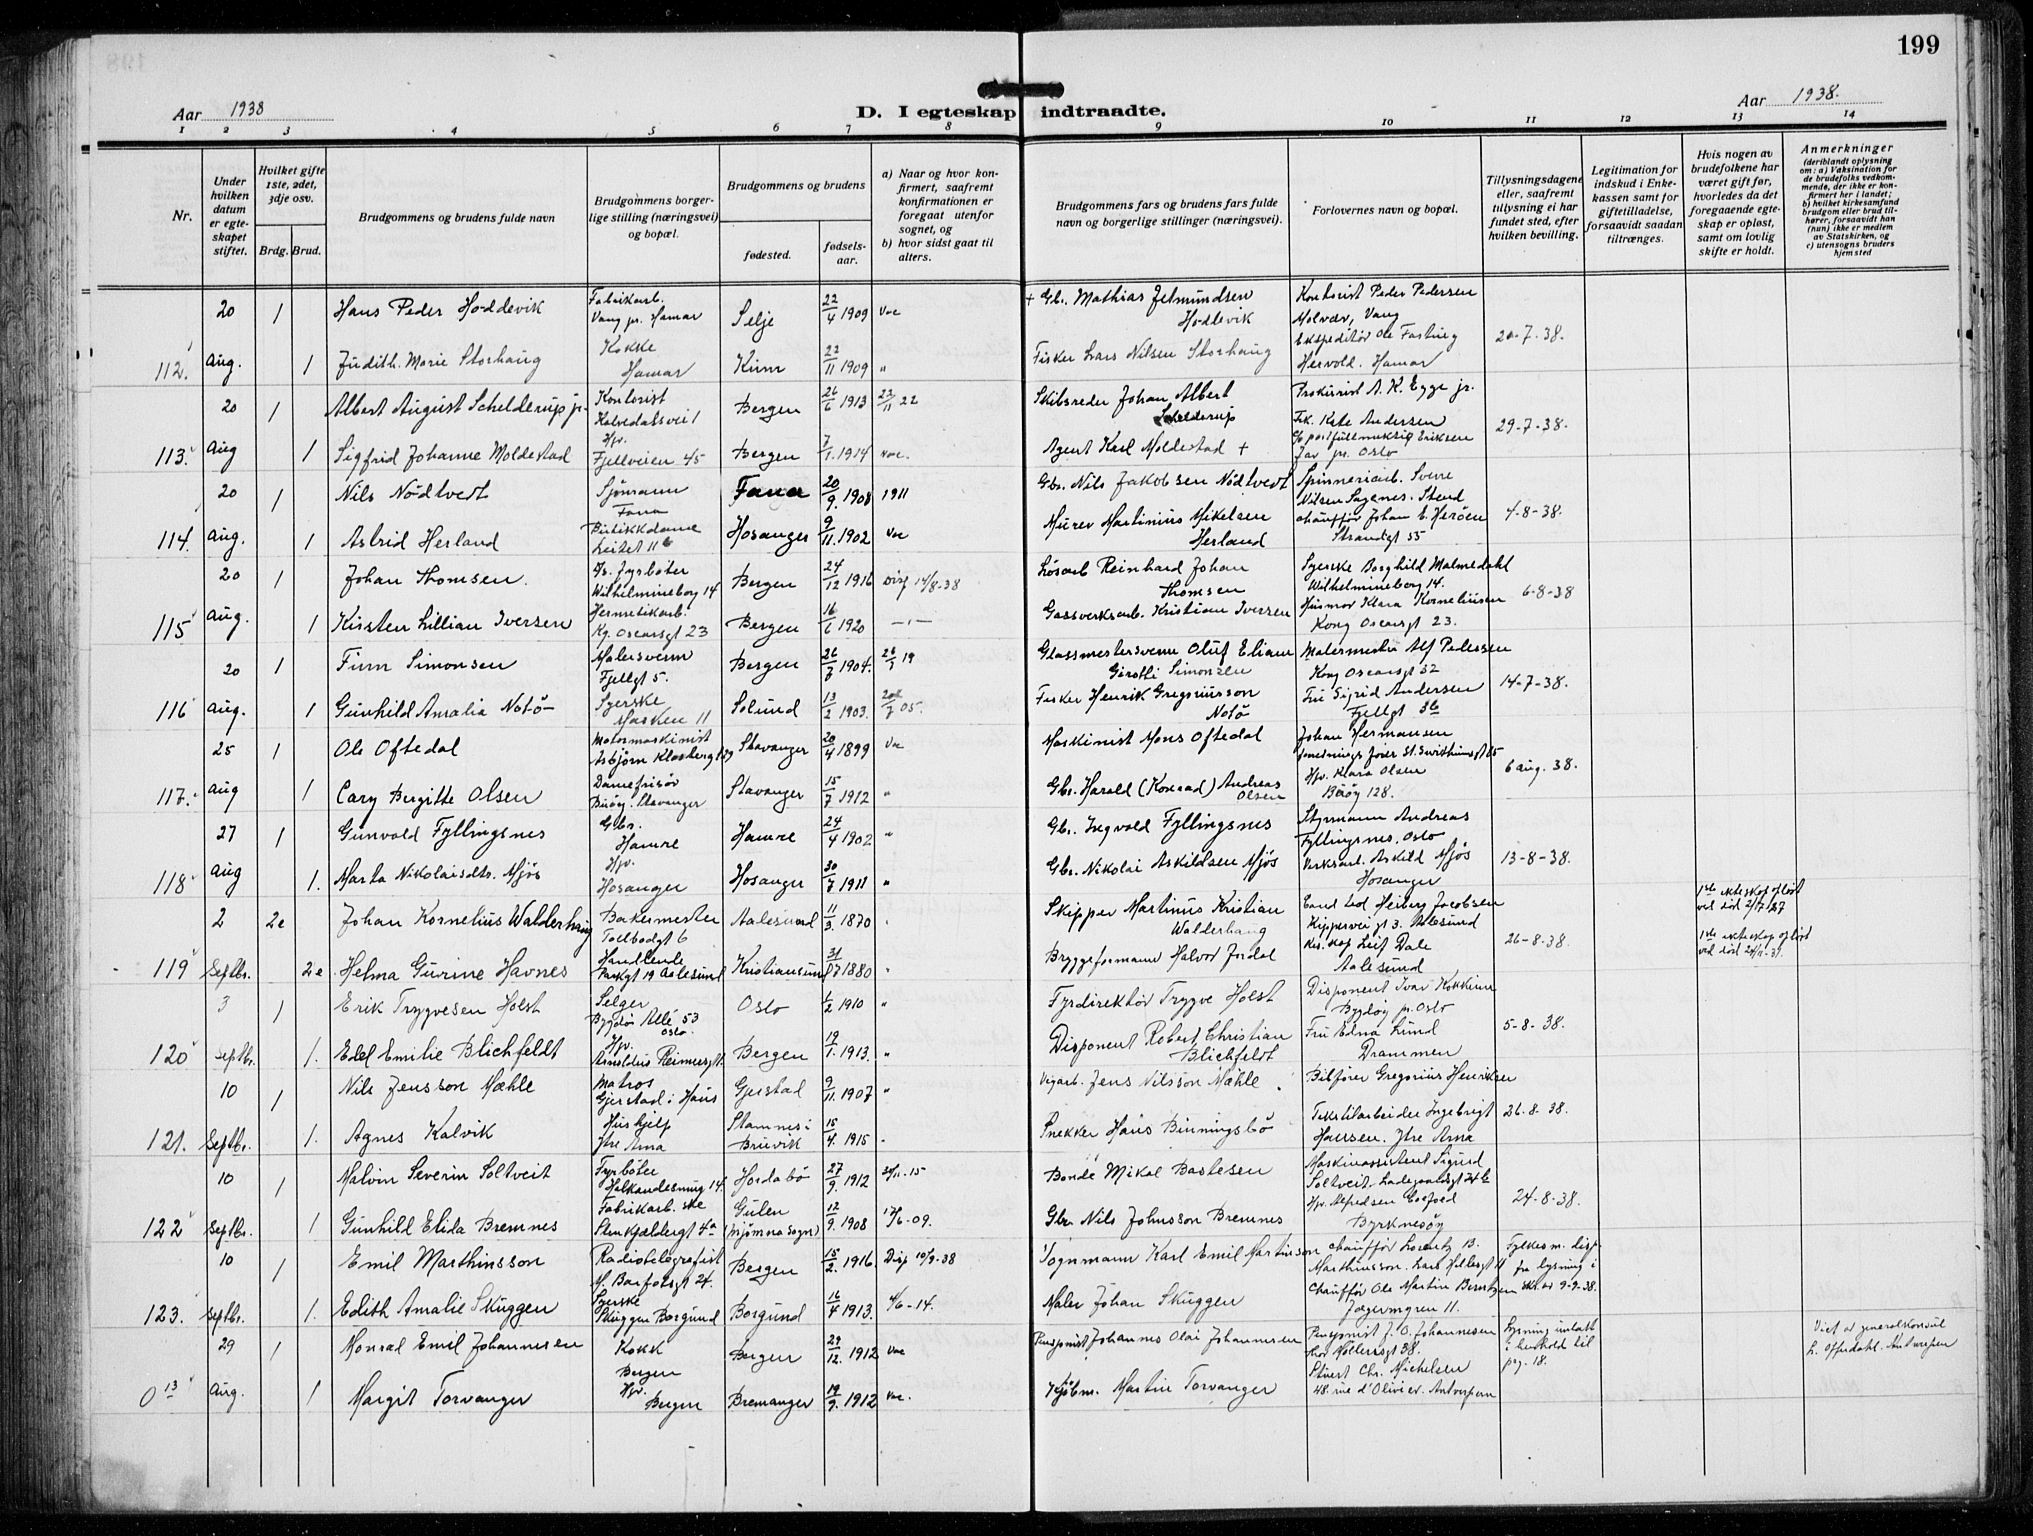 199
Aar 1938
D. I egteskap indtraadte.
Aar 1938.
1 2 3 4 5 6 7 8 9 10 11 12 13 14
Nr.
Under hvilken datum er egteskapet stiftet.
Hvilket gifte 1ste, 2det, 3dje osv.
Brdg. Brud.
Brudgommens og brudens fulde navn
Brudgommens borgerlige stilling (næringsvei) og bopæl.
Brudgommens og brudens
fødested.
fødselsaar.
a) Naar og hvor konfirmert, saafremt konfirmationen er foregaat utenfor sognet, og
b) hvor sidst gaat til alters.
Brudgommens fars og brudens fars fulde navn og borgerlige stillinger (næringsvei).
Forlovernes navn og bopæl.
Tillysningsdagene eller, saafremt tillysning ei har fundet sted, efter hvilken bevilling.
Legitimation for indskud i Enkekassen samt for giftetilladelse, forsaavidt saadan tiltrænges.
Hvis nogen av brudefolkene har været gift før, hvorledes da det foregaaende egteskap er opløst, samt om lovlig skifte er holdt.
Anmerkninger
(deriblandt oplysning om: a) Vaksination for de brudefolks vedkommende, der ikke er konfirmert her i landet; b) hvilket kirkesamfund brudgom eller brud tilhører, forsaavidt han (hun) ikke er medlem av Statskirken, og c) utensogns bruders hjemsted
20 1 Hans Peder Hoddevik Fabrikarb. Vang pr. Hamar Selje 22/4 1909 Vac + Gbr. Mathias Jetmundsen Hoddevik Kontorist Peder Pedersen Vang
112. Aug. 1 Judith Marie Storhaug Kokke Hamar Kinn 22/11 1909 " Fisker Lars Nilsen Storhaug Ekspeditør Ole Hervold. Hamar 20-7-38.
20 1 Albert August Schelderup jr. Kontorist Kalvedalsvei 1 Bergen 26/6 1913 22/11 22 Skibsreder Johan Albert Schelderup Prokurist A. K. Egge jr.
113. Aug 1 Sigfrid Johanne Moldestad Hjv. Fjellveien 45 Bergen 7/1 1914 vac. Agent Karl Moldestad + Frk. Kate Andersen Eriksen Jar pr. Oslo 29-7-38.
20 1 Nils Nödtvedt Sjömann Fana Fana 20/9 1908 1911 Gbr. Nils Jakobsen Nödtvedt Spinneriarb. Sverre Nilsen Stend
114. Aug. 1 Astrid Herland Butikkdame Leitet 11 b Hosanger 9/11 1902 Vac Murer Martinius Mikelsen Herland chauffør Johan E. Herøen Strandgt 55 4-8-38.
20 1 Johan Thomsen. Fyrböter Wilhelmineborg 14 Bergen 24/12 1916 Disp 14/8-38 Lösarb Reinhard Johan Thomsen Syerske Borghild Malmedahl Wilhelmineborg 14.
115 Aug. 1 Kirsten Lillian Iversen Hermetikarb. Kg. Oscarsgt 23 Bergen 16/6 1920 —"— Gassverksarb. Kristian Iversen Husmor Klara Korneliusen Kong Oscarsgt 23. 6-8-38
20 1 Finn Simonsen Malersvenn Fjellgt 5. Bergen 26/7 1904. Glassmestersvenn Oluf Elian Simonsen Malermester Alf Pedersen Kong Oscarsgt 32
116 Aug. 1 Gunhild Amalia Notö Syerske Marken 11 Solund 13/2 1903. Fisker Henrik Gregoriusson Notö Fru Sigrid Andersen Fjellgt 3b 14-7-38.
25 1 Ole Oftedal Motormaskinist Asbjørn Klostergt 29 Stavanger 20/4 1899 Vac Maskinist Mons Oftedal Johan Hermansen St. Swithunsgt
117. Aug 1 Cary Bergitte Olsen Damefrisör Buöy. Stavanger Stavanger 15/7 1912 " Gbr. Harald (Konrad) Andreas Olsen Hjv. Klara Olsen Buöy 128. 6 aug. 38.
27 1 Gunvald Fyllingsnes Gbr. Hamre Hamre 24/4 1902 " Gb. Ingvald Fyllingsnes Styrmann Andreas Fyllingsnes, Oslo
118 Aug 1. Marta Nikolaisdtr. Mjös Hjv. Hosanger Hosanger 30/7 1911 " Gbr. Nikolai Askildsen Mjös Verksarb. Askild Mjös Hosanger 13-8-38.
2 2e Johan Kornelius Walderhaug Bakermester Tollbodgt 6 Aalesund 11/3 1870 Skipper Martinus Kristian Walderhaug Heiberg Jacobsen Kippervei gt 3. Aalesund 1ste ekteskap oplöst ved död 2/7-27
119 Septbr. 2e Helma Gurine Havnes Handlende Parkgt 19 Aalesund Kristiansund 31/7 1880 " Bryggeformann Halvor Jordal Leif Dale Aalesund 26-8-38. 1ste ekteskap oplöst ved död
3 1 Erik Trygvesen Holst Selger Bygdöy Allé 53 Oslo. Oslo 1/2 1910 " Fyrdirektör Trygve Holst Disponent Ivar Bygdöy pr. Oslo
120 Septbr. 1. Edel Emilie Blichfeldt Hjv. Arnoldus Reimersgt. Bergen 19/1. 1913. " Disponent Robert Christian Blichfeldt Fru Edna Lund Drammen 5-8-38.
10 1 Nils Jensson Mæhle Matros Gjerstad i Haus Gjerstad 9/11. 1907 " Vegarb. Jens Nilsson Mæhle Bilfører Gregorius Henriksen
121. Septbr. 1. Agnes Kalvik Hushjelp Ytre Arna Stamnes i Bruvik 15/4. 1915 Snekker Hans Binningsbö Tekstilarbeider Ingebrigt Hansen. Ytre Arna 26-8-38.
10 1 Malvin Severin Soltveit Fyrböter 14. Hordabö 27/9. 1912 Bonde Mikal Bastesen Maskinassistent Sigurd Soltveit
122 Septbr. 1 Gunhild Elida Bremnes Fabrikarb. ske Stenkjellergt 4a Gulen (Mjömna sogn) 12/9. 1908 Gbr Nils Johnsson Bremnes Hjv. Alfredsen Byrknesöy 24-8-38.
10 1 Emil Marthinsson Radiotelegrafist M. Barfotsgt 24. Bergen 15/2. 1916 Disp 10/9-38 Vognmann Karl Emil Martinson Chauffør Lorentz B. Marthinsson. Lars Hillesgt Fylkesm. disp. fra lysning i
123. Septbr. 1. Edith Amalie Skuggen Syerske Skuggen Borgund Borgund 16/4 1913. Maler Johan Skuggen Chauffør Ole Martin Berntzen 11. skr. av 9-9-38.
29 1 Monrad Emil Johannesen Kokk Bergen Bergen 29/12. 1912 Vac Pensjonist Johannes Olai Johannesen Pensjonist J. O. Johannesen 38. Lysning unlatt i henhold til prg. 18. Viet av generalkonsul L. Oppedahl. Antwerpen
0 13 Aug. 1 Margit Torvanger Hjv. Bergen Bremanger 19/9. 1912 Vac. Martin Torvanger Stuert Chr. Michelsen 48 rue d'Olivier. Antwerpen